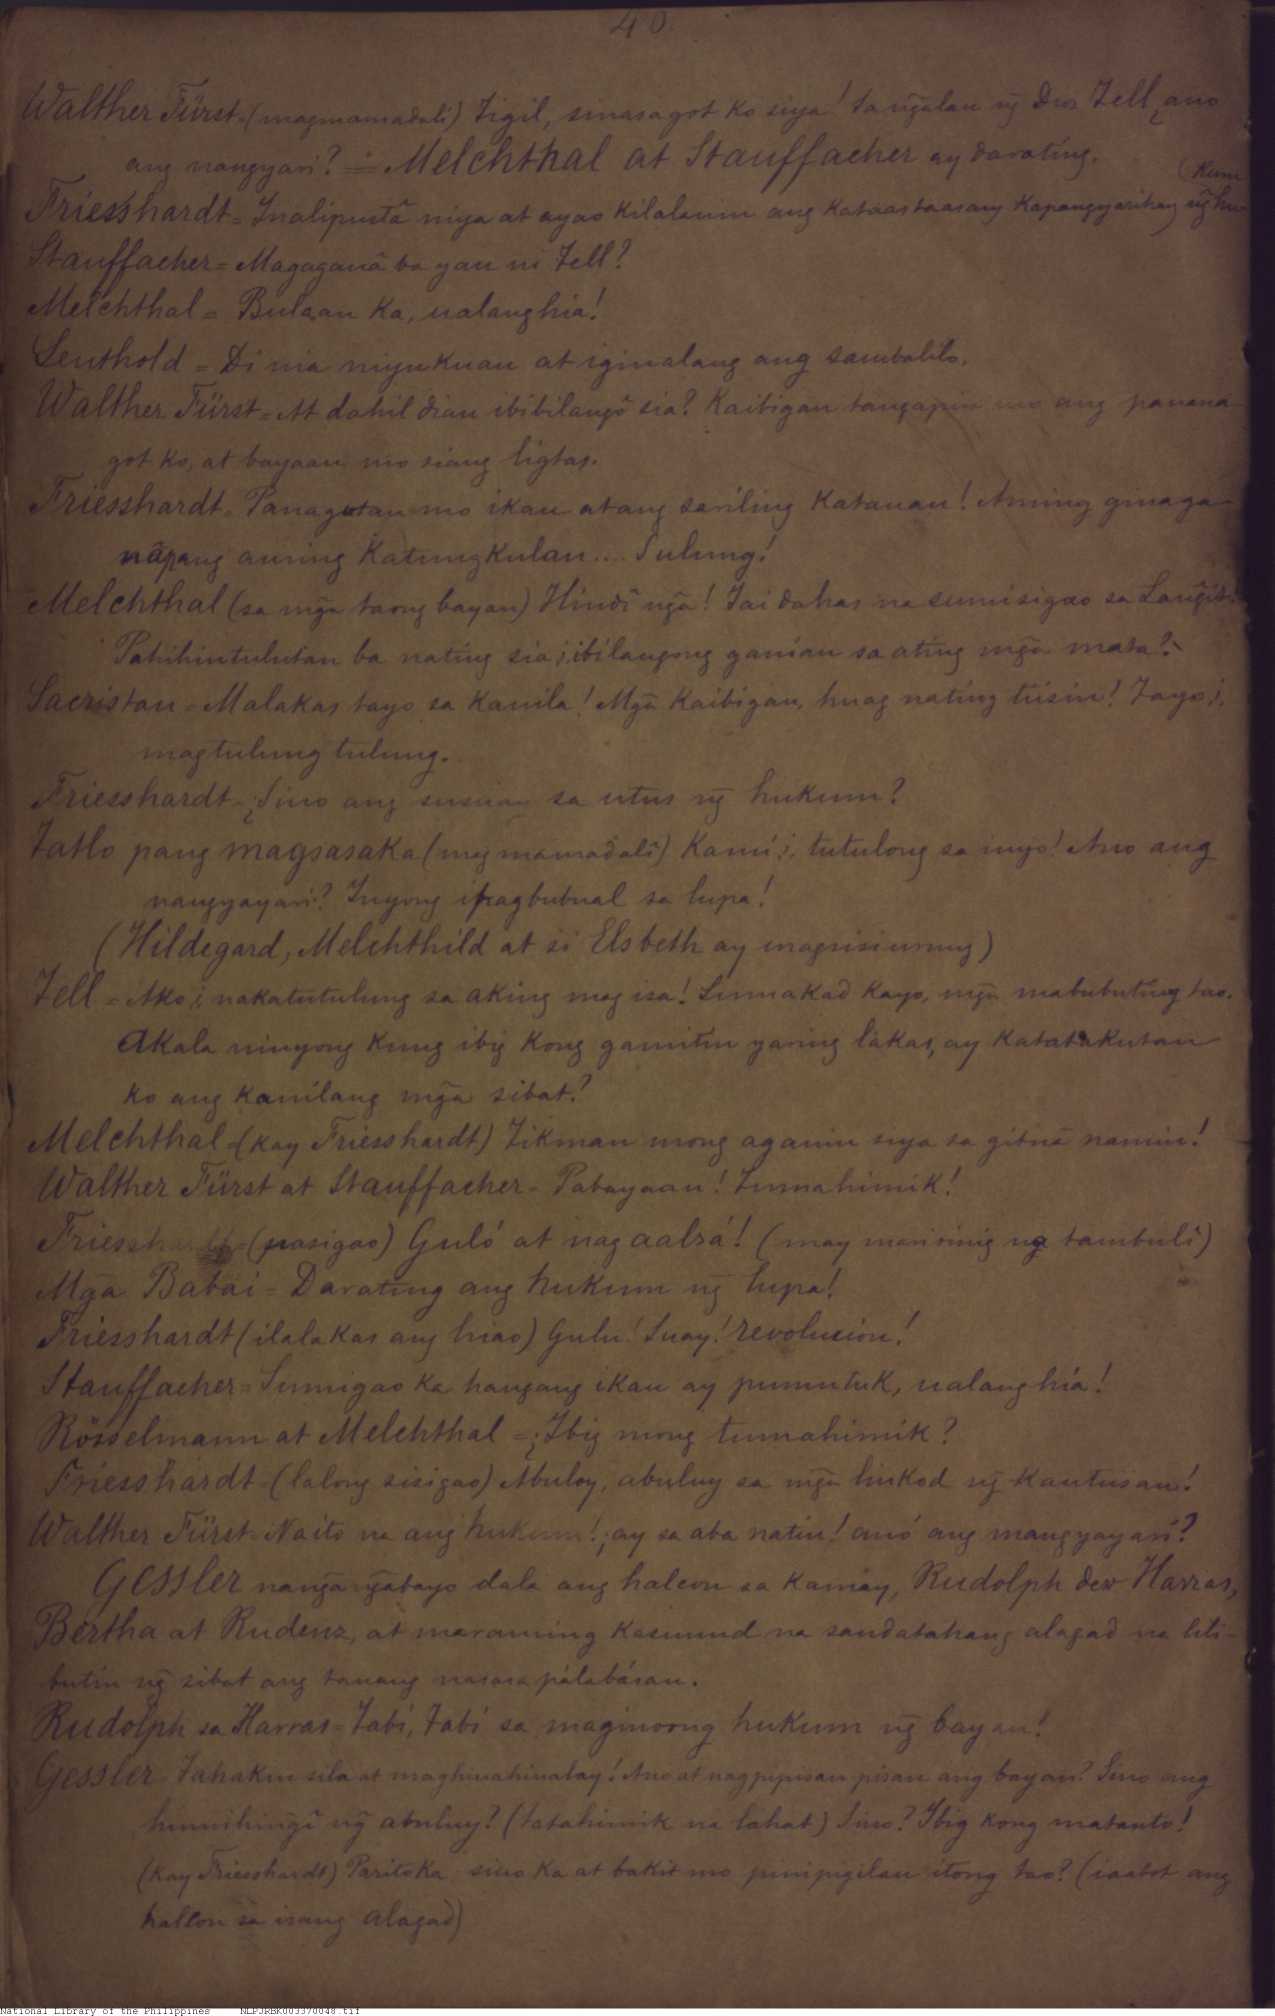 40
Walther Fürst = (magmamadali) Tigil, sinasagot ko siya! sa ng̃alan ng̃ Dios Tell ¿ano
ang nangyari? = Melchthal at Stauffacher ay darating.
(kum
Friesshardt = Inalipustâ niya at ayao kilalanin ang kataastaasang kapangyarihan ng̃ hu-
Stauffacher = Magagawâ ba yan ni Tell?
Melchthal = Bulaan ka, ualanghia!
Leuthold = Di nia niyukuan at iginalang ang sambalilo.
Walther Fürst = At dahil dian ibibilangô sia? Kaibigan tangapin mo ang panana-
got ko, at bayaan mo siang ligtas.
Friesshardt = Panagutan mo ikau at ang sariling katauan! Aming ginaga-
nâpang aming katungkulan.... Sulung!
Melchthal (sa mg̃a taong bayan) Hindî ng̃a! Iai dahas na sumisigao sa Lang̃it!
Pahihintulutan ba nating sia,i, ibilangong ganian sa ating mg̃a mata?
Sacristan = Malakas tayo sa kanila! Mg̃a kaibigan, huag nating tiisin! Tayo,i,
magtulung tulung.
Friesshardt = ¿Sino ang susuay sa utus ng̃ hukum?
Tatlo pang magsasaka (mag mamadalî) Kami,i, tutulong sa inyo! Ano ang
nangyayari? Inyong ipagbubual sa lupa!
(Hildegard, Melchthild at si Elsbeth ay magsisiurung)
Tell = Ako,i, nakatutulung sa aking mag isa! Lumakad kayo, mg̃a mabubuting tao.
Akala ninyong kung ibig kong gamitin yaring lakas, ay katatakutan
ko ang kanilang mg̃a sibat?
Melchthal = (kay Friesshardt) Tikman mong agauin siya sa gitnâ namin!
Walther Fürst at Stauffacher = Pabayaan! Tumahimik!
Friesshardt = (pasigao) Guló at nag aalsá! (may maririnig ng tambulî)
Mg̃a Babai = Darating ang hukum ng̃ lupa!
Friesshardt (ilalakas ang hiao) Gulu! Suay! revolucion!
Stauffacher = Sumigao ka hangang ikau ay pumutuk, ualanghia!
Rösselmann at Melchthal = ¿Ibig mong tumahimik?
Friesshardt = (lalong sisigao) Abuloy, abuluy sa mg̃a linkod ng̃ kautusan!
Walther Fürst = Naito na ang hukum!, ay sa aba natin! anó ang mangyayari?
Gessler nang̃ang̃abayo dala ang halcon sa kamay, Rudolph der Harras,
Bertha at Rudenz, at maraming kasunud na sandatahang alagad na lili-
butin ng̃ sibat ang tanang nasasa pálabásan.
Rudolph sa Harras = Tabí, tabí sa maginoong hukum ng̃ bayan!
Gessler = Tahakin sila at maghinahinalay! Ano at nagpipisan pisan ang bayan? Sino ang
humihing̃î ng̃ abuluy? (tatahimik na lahat) Sino? Ibig kong matanto!
(kay Friesshardt) Parito ka sino ka at bakit mo pinipigilan itong tao? (iaabot ang
halcon sa isang alagad)
National Library of the Philippines NLPJRBK003370048.tif